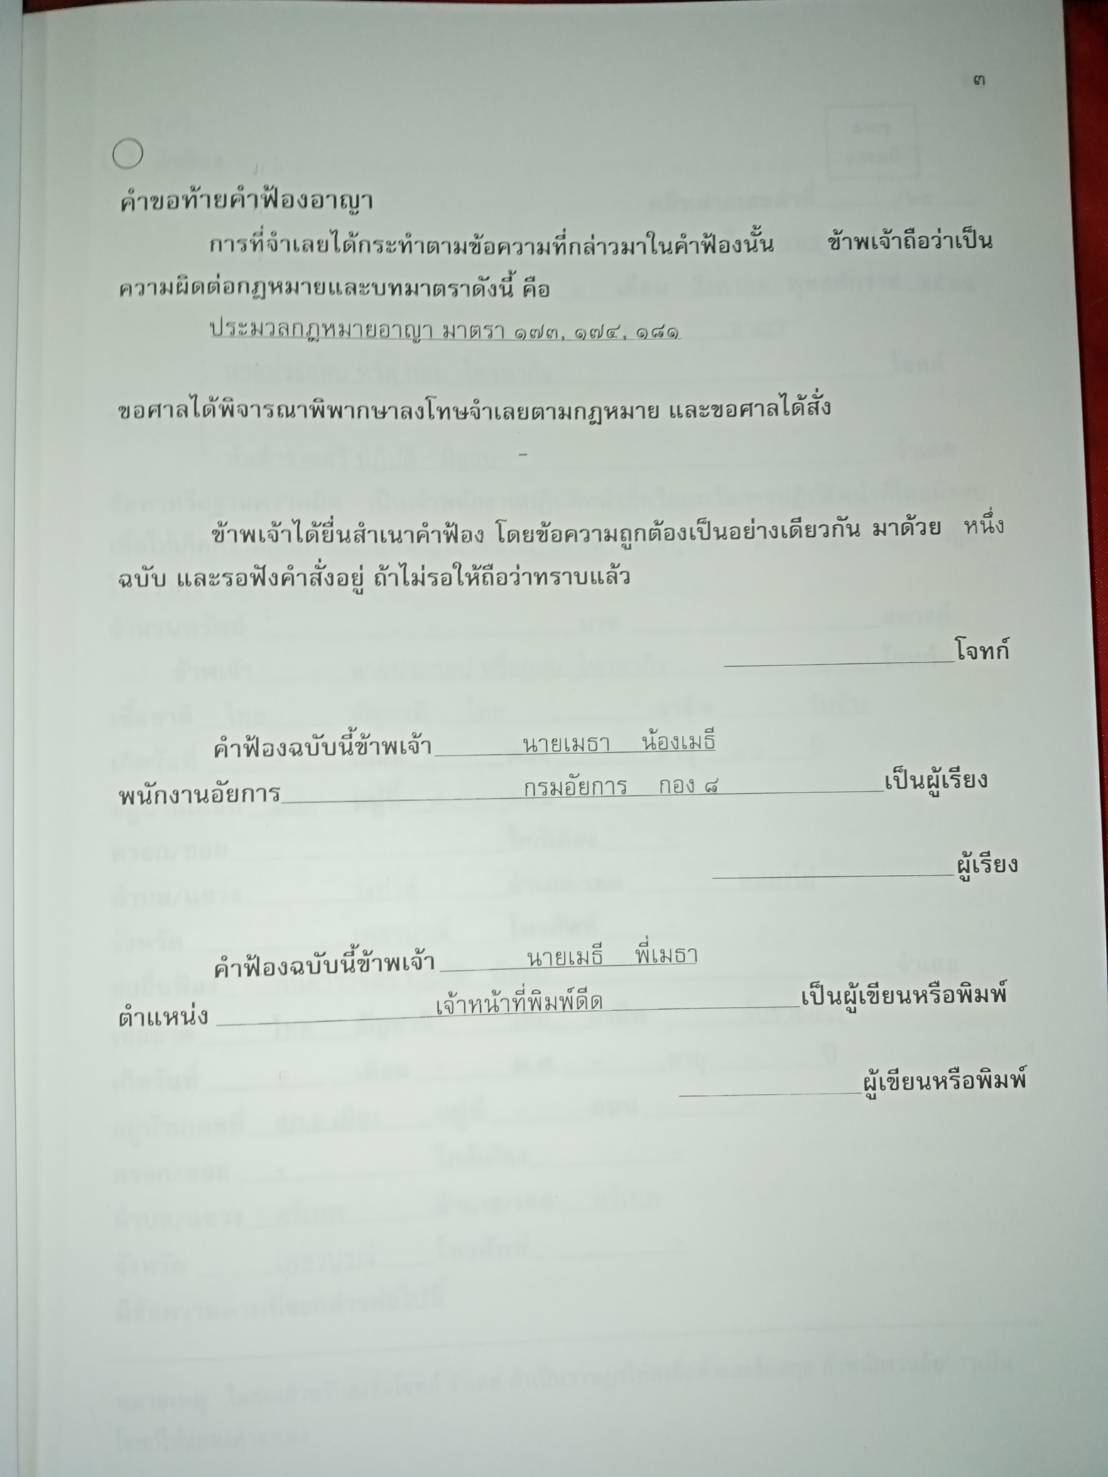 ๓
คำขอท้ายคำฟ้องอาญา
การที่จำเลยได้กระทำตามข้อความที่กล่าวมาในคำฟ้องนั้น ข้าพเจ้าถือว่าเป็น
ความผิดต่อกฎหมายและบทมาตราดังนี้ คือ
ประมวลกฎหมายอาญา มาตรา ๑๗๓, ๑๗๔, ๑๘๑
ขอศาลได้พิจารณาพิพากษาลงโทษจำเลยตามกฎหมาย และขอศาลได้สั่ง
-
ข้าพเจ้าได้ยื่นสำเนาคำฟ้อง โดยข้อความถูกต้องเป็นอย่างเดียวกัน มาด้วย หนึ่ง
ฉบับ และรอฟังคำสั่งอยู่ ถ้าไม่รอให้ถือว่าทราบแล้ว
โจทก์
คำฟ้องฉบับนี้ข้าพเจ้า นายเมธา น้องเมธี
พนักงานอัยการ กรมอัยการ กอง ๘ เป็นผู้เรียง
ผู้เรียง
คำฟ้องฉบับนี้ข้าพเจ้า นายเมธี พี่เมธา
ตำแหน่ง เจ้าหน้าที่พิมพ์ดีด เป็นผู้เขียนหรือพิมพ์
ผู้เขียนหรือพิมพ์